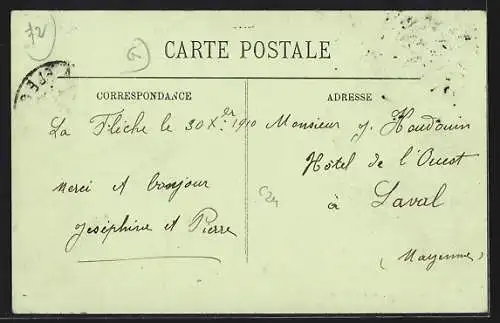 72
CARTE POSTALE
CORRESPONDANCE
ADRESSE
La Flèche le 30 Xbre 1910
Monsieur J. Houdouin
Hôtel de l'Ouest
à Laval
(Mayenne)
Merci et bonjour
Joséphine et Pierre